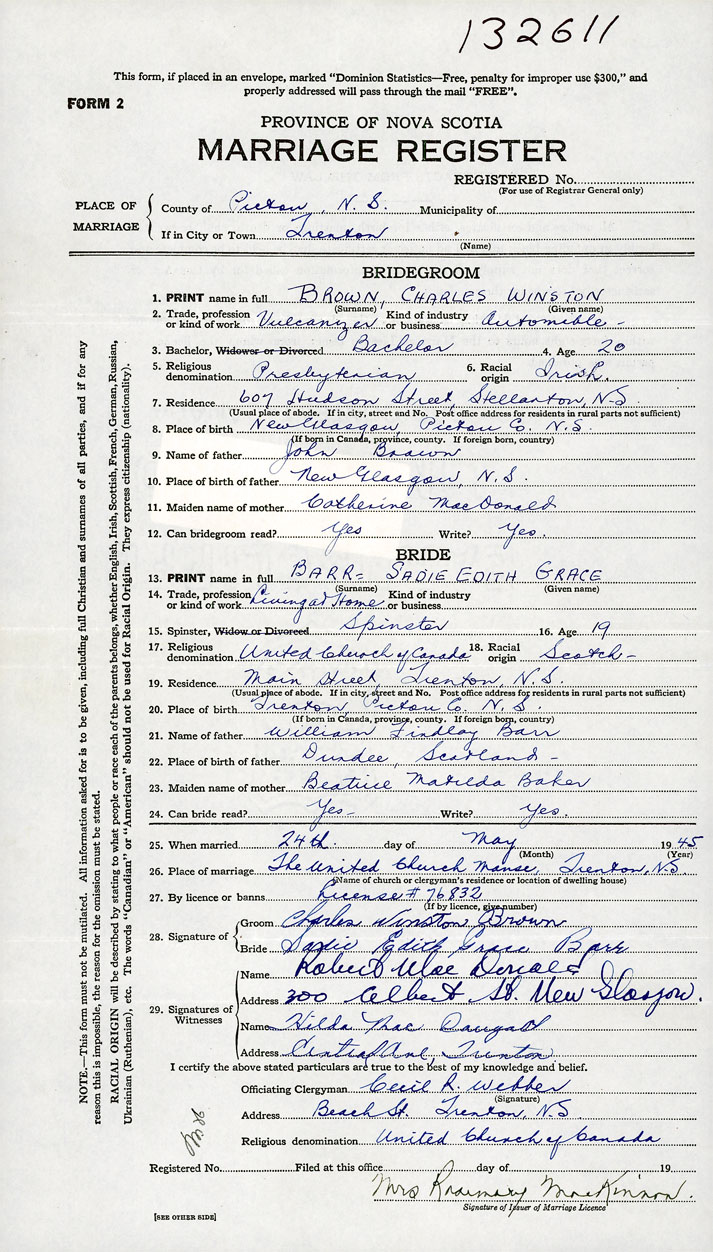 132611
This form, if placed in an envelope, marked "Dominion Statistics—Free, penalty for improper use $300," and
properly addressed will pass through the mail "FREE".
FORM 2
PROVINCE OF NOVA SCOTIA
MARRIAGE REGISTER
REGISTERED No.
(For use of Registrar General only)
PLACE OF MARRIAGE
County of Pictou, N. S. Municipality of
If in City or Town Trenton
(Name)
BRIDEGROOM
1. PRINT name in full BROWN, CHARLES WINSTON
(Surname) (Given name)
2. Trade, profession or kind of work Vulcanizer Kind of industry or business Automible -
3. Bachelor, Widower or Divorced Bachelor 4. Age 20
5. Religious denomination Presbyterian 6. Racial origin Irish.
7. Residence 607 Hudson Street, Stellarton, N.S.
(Usual place of abode. If in city, street and No. Post office address for residents in rural parts not sufficient)
8. Place of birth New Glasgow, Pictou Co. N.S.
(If born in Canada, province, county. If foreign born, country)
9. Name of father John Brown
10. Place of birth of father New Glasgow, N.S.
11. Maiden name of mother Catherine MacDonald
12. Can bridegroom read? Yes Write? Yes.
BRIDE
13. PRINT name in full BARR= SADIE EDITH GRACE
(Surname) (Given name)
14. Trade, profession or kind of work Living at Home Kind of industry or business
15. Spinster, Widow or Divorced Spinster 16. Age 19
17. Religious denomination United Church of Canada 18. Racial origin Scotch -
19. Residence Main Street, Trenton, N.S.
(Usual place of abode. If in city, street and No. Post office address for residents in rural parts not sufficient)
20. Place of birth Trenton, Pictou Co. N.S.
(If born in Canada, province, county. If foreign born, country)
21. Name of father William Findlay Barr
22. Place of birth of father Dundee, Scotland -
23. Maiden name of mother Beatrice Matilda Baker
24. Can bride read? Yes- Write? Yes.
25. When married 24th. day of May 1945
(Month) (Year)
26. Place of marriage The United Church Manse, Trenton, N.S.
(Name of church or clergyman's residence or location of dwelling house)
27. By licence or banns License # 76832
(If by licence, give number)
28. Signature of
Groom Charles Winston Brown
Bride Sadie Edith Grace Barr
29. Signatures of Witnesses
Name Robert Mac Donald
Address 300 Albert St. New Glasgow.
Name Hilda MacDougall
Address Central Ave, Trenton
I certify the above stated particulars are true to the best of my knowledge and belief.
Officiating Clergyman Cecil R. Webber
(Signature)
Address Beach St. Trenton, N.S.
Religious denomination United Church of Canada
Registered No. Filed at this office day of 19
Mrs Rosemary MacKinnon.
Signature of Issuer of Marriage Licence
[SEE OTHER SIDE]
NOTE.—This form must not be mutilated. All information asked for is to be given, including full Christian and surnames of all parties, and if for any
reason this is impossible, the reason for the omission must be stated.
RACIAL ORIGIN will be described by stating to what people or race each of the parents belongs, whether English, Irish, Scottish, French, German, Russian,
Ukrainian (Ruthenian), etc. The words "Canadian" or "American" should not be used for Racial Origin. They express citizenship (nationality).